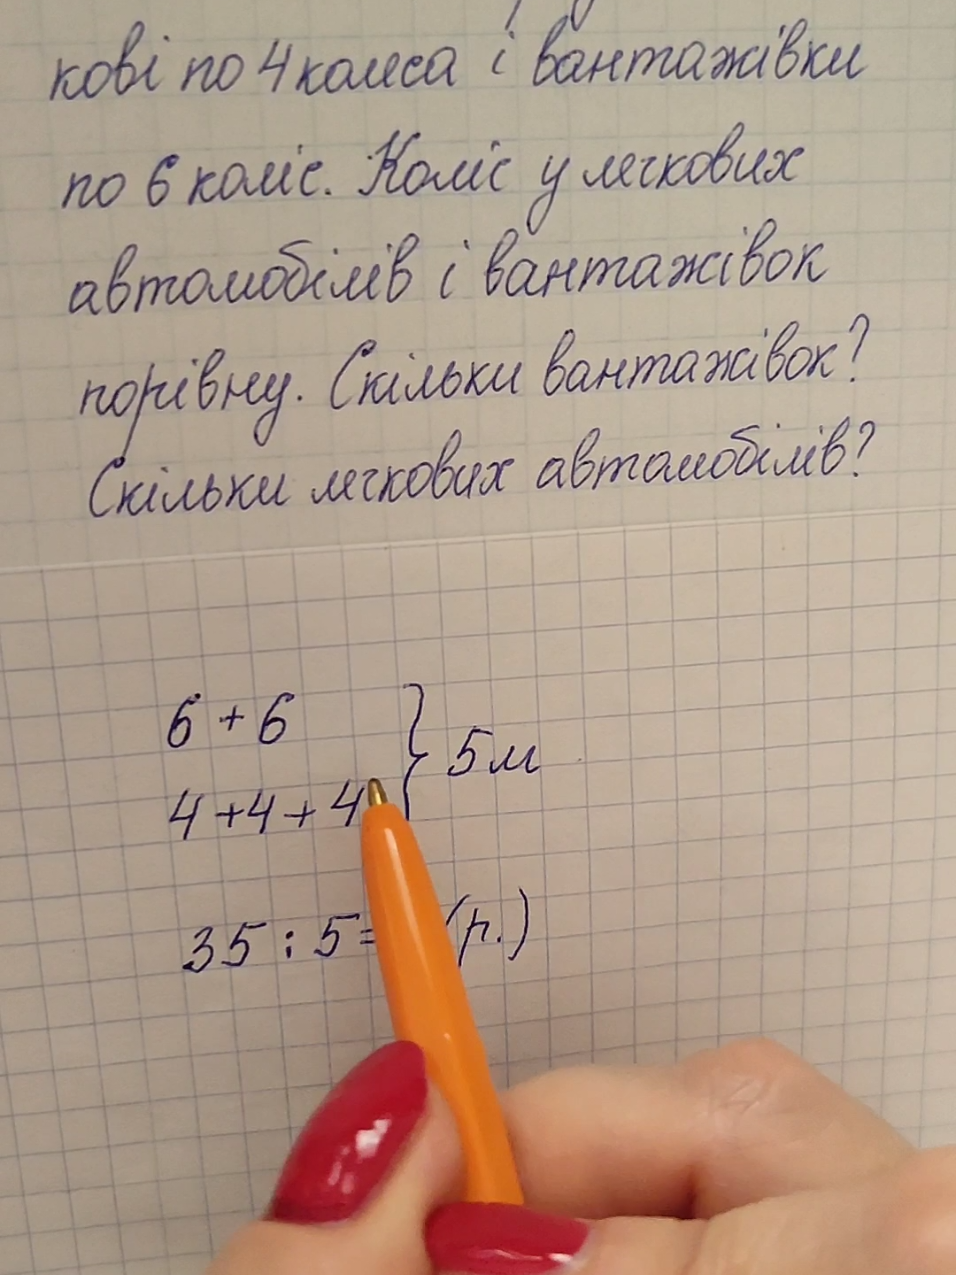 кові по 4 колеса і вантажівки
по 6 коліс. Коліс у легкових
автомобілів і вантажівок
порівну. Скільки вантажівок?
Скільки легкових автомобілів?
6 + 6
4 + 4 + 4 } 5м
35 : 5 = (р.)